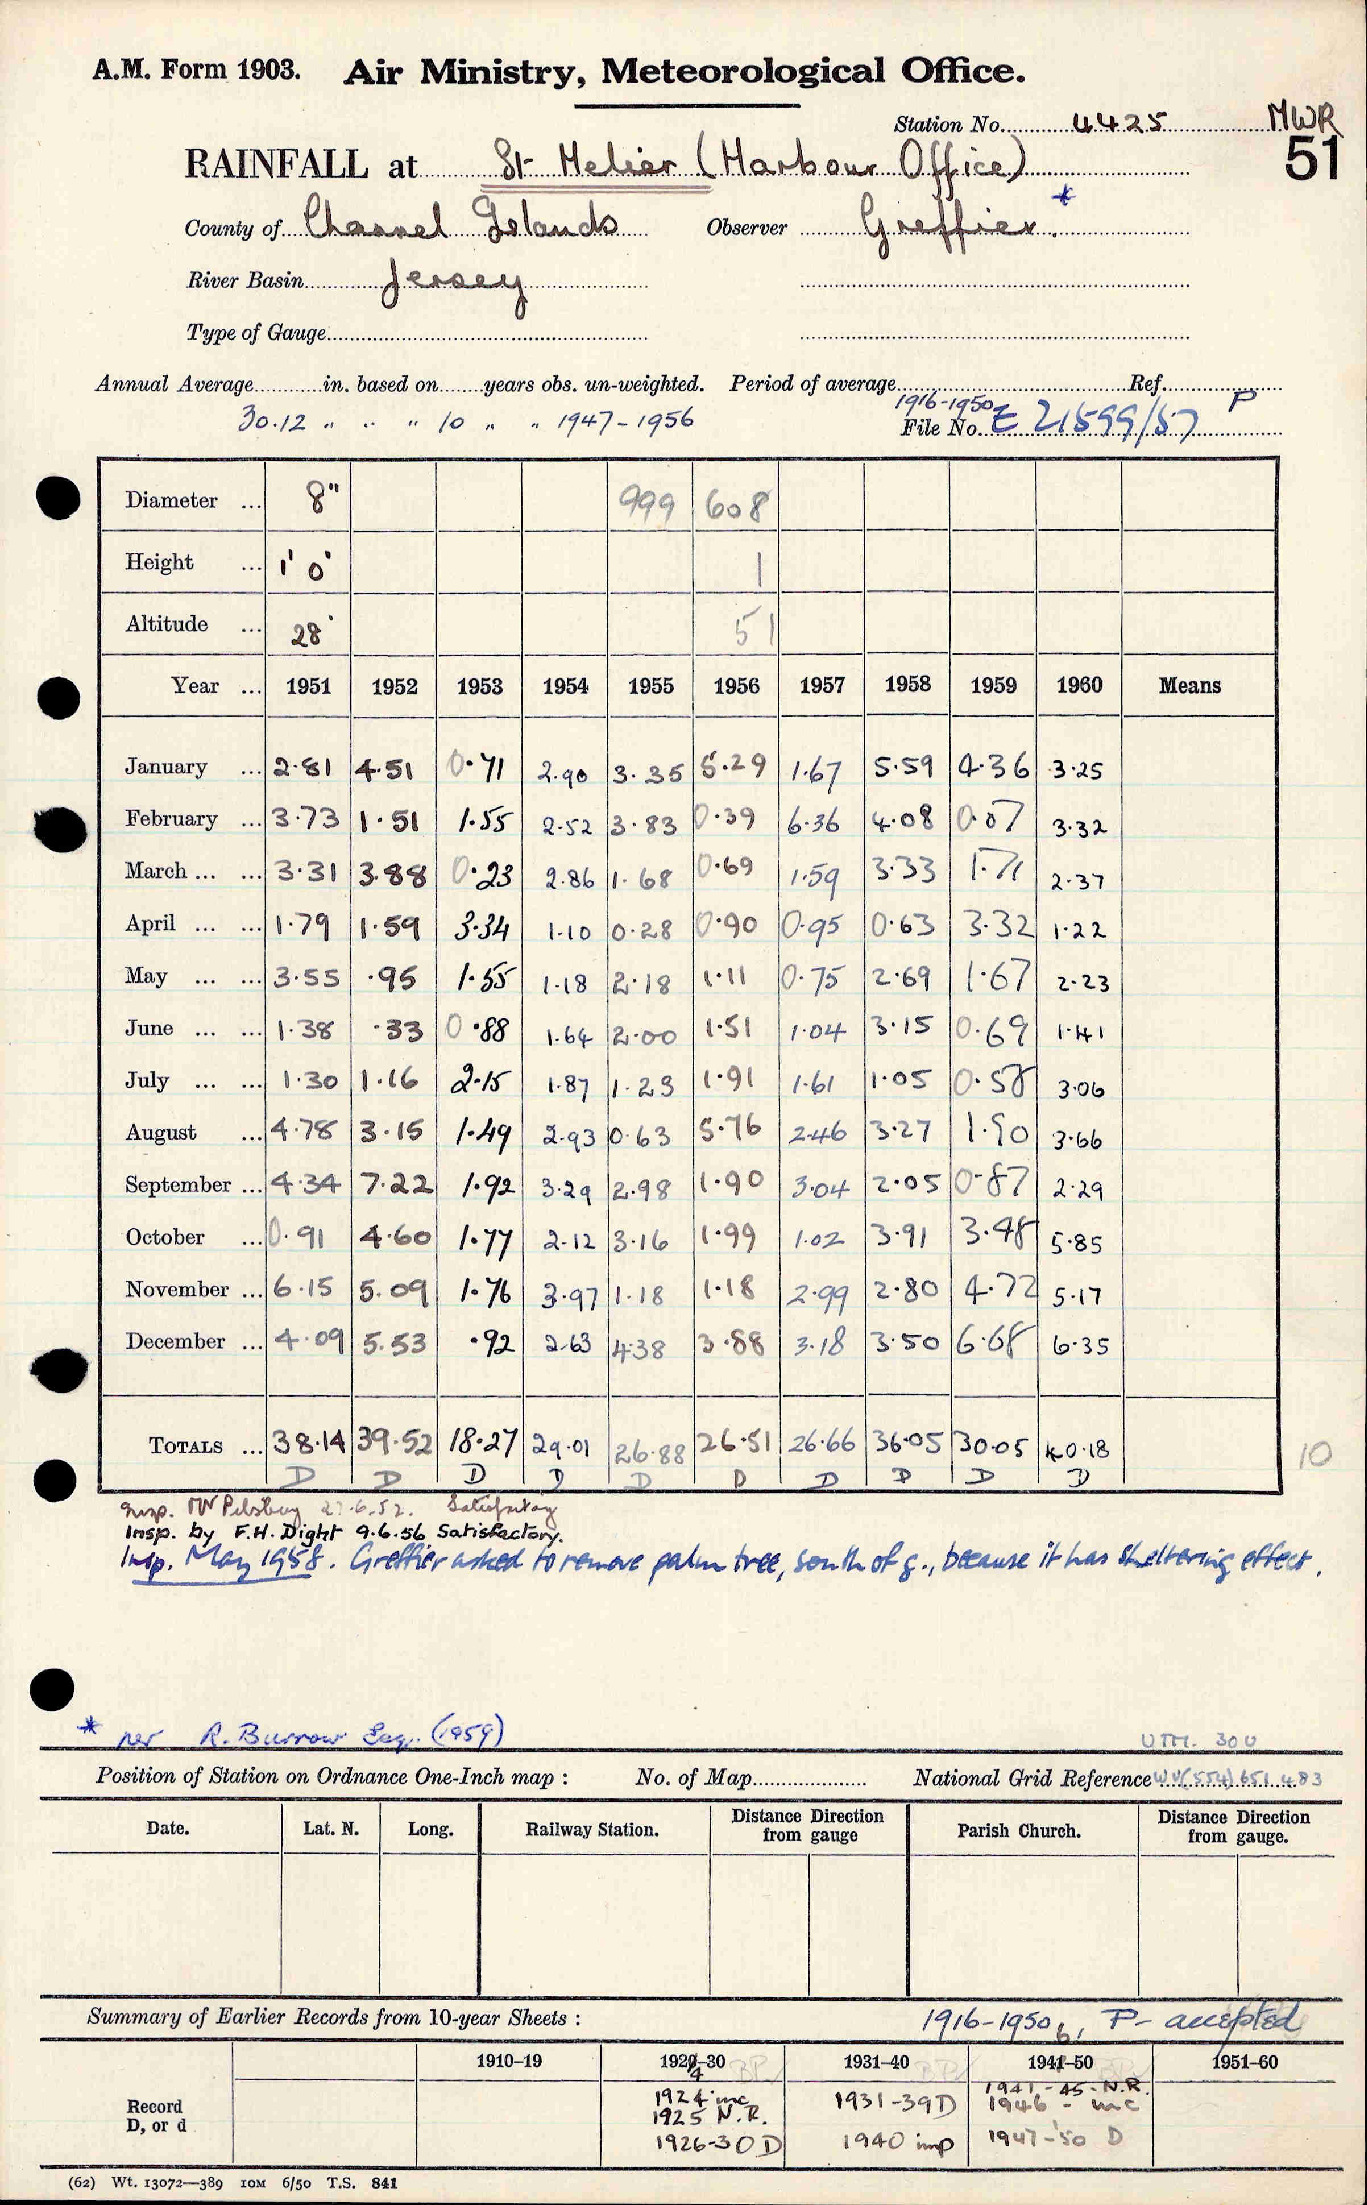 A.M. Form 1903. Air Ministry, Meteorological Office.
Station No. 4425 MWR
RAINFALL at St Helier (Harbour Office) 51
County of Channel Islands Observer Greffier. *
River Basin Jersey
Type of Gauge
Annual Average in. based on years obs. un-weighted. Period of average Ref.
30.12 " " " 10 " " 1947-1956 1916-1950 File No. E 21599/57 P
Diameter ... 8" 999 608
Height ... 1' 0" 1
Altitude ... 28' 51
Year ... 1951 1952 1953 1954 1955 1956 1957 1958 1959 1960 Means
January ... 2.81 4.51 0.71 2.90 3.35 5.29 1.67 5.59 4.36 3.25
February ... 3.73 1.51 1.55 2.52 3.83 0.39 6.36 4.08 0.07 3.32
March ... ... 3.31 3.88 0.23 2.86 1.68 0.69 1.59 3.33 1.71 2.37
April ... ... 1.79 1.59 3.34 1.10 0.28 0.90 0.95 0.63 3.32 1.22
May ... ... 3.55 .95 1.55 1.18 2.18 1.11 0.75 2.69 1.67 2.23
June ... ... 1.38 .33 0.88 1.64 2.00 1.51 1.04 3.15 0.69 1.41
July ... ... 1.30 1.16 2.15 1.87 1.23 1.91 1.61 1.05 0.58 3.06
August ... 4.78 3.15 1.49 2.93 0.63 5.76 2.46 3.27 1.90 3.66
September ... 4.34 7.22 1.92 3.29 2.98 1.90 3.04 2.05 0.87 2.29
October ... 0.91 4.60 1.77 2.12 3.16 1.99 1.02 3.91 3.48 5.85
November ... 6.15 5.09 1.76 3.97 1.18 1.18 2.99 2.80 4.72 5.17
December ... 4.09 5.53 .92 2.63 4.38 3.88 3.18 3.50 6.68 6.35
TOTALS ... 38.14 39.52 18.27 29.01 26.88 26.51 26.66 36.05 30.05 40.18 10
D D D D D D D D D D
Insp. MN Pelsbury 27.6.52. Satisfactory
Insp. by F.H. Dight 9.6.56 Satisfactory.
Insp. May 1958. Greffier asked to remove palm tree, south of g., because it has sheltering effect.
* per R. Burrow Esq. (1959)
UTM. 30U
Position of Station on Ordnance One-Inch map : No. of Map National Grid Reference WV(554) 651 483
Date. Lat. N. Long. Railway Station. Distance Direction from gauge Parish Church. Distance Direction from gauge.
Summary of Earlier Records from 10-year Sheets : 1916-1950, P- accepted
1910-19 1920-30 1931-40 1941-50 1951-60
4
Record D, or d
1924 inc 1931-39D 1941-45-N.R.
1925 N.R. 1946 - inc
1926-30 D 1940 imp 1947-50 D
(62) Wt. 13072—389 10M 6/50 T.S. 841